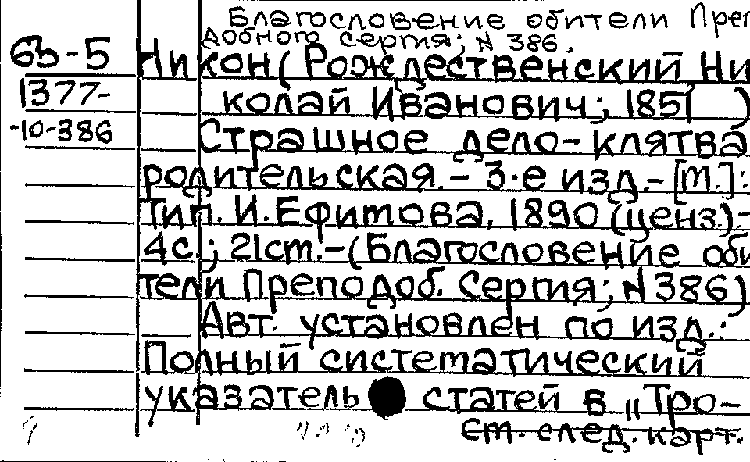 Благословение обители Преп
добного Сергия; N 386.
6з-5 Никон (Рождественский Ни
1377- колай Иванович; 1851 )
-10-386 Страшное дело- клятва
родительская. - 3-е изд. - [М.]:
Тип. И. Ефимова, 1890 (ценз.)-
4с.; 21ст. - (Благословение оби
тели Преподоб. Сергия; N 386)
Авт. установлен по изд.:
Полный систематический
указатель статей в „Тро-
См. след. карт.